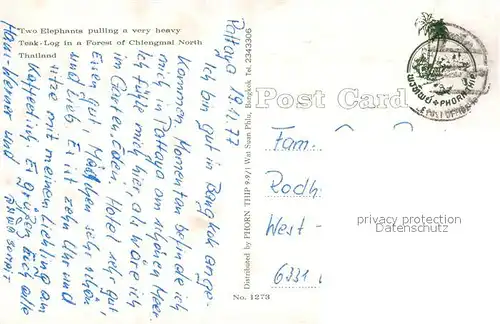 "Two Elephants pulling a very heavy
Teak-Log in a Forest of Chiengmai North
Thailand
Pattaya 19.11.77
Ich bin gut in Bangkok ange-
kommen. Momentan befinde ich
mich in Pattaya am schönen Meer.
Ich fühle mich hier, als wäre ich
im Garten Eden. Hotel sehr gut,
Essen gut, Mädchen sehr schön
und lieb. Es ist zehn Uhr und
sitze mit meinem Liebling am
Kaffeetisch. Es grüßen Euch alle
Hans-Werner und
Distributed by PHORN THIP 9-9/1 Wat Suan Phlu, Bangkok Tel. 2343306
Post Card
PHORN THIP
Fam.
Rodh
West -
6331
privacy protection
oldthing.com
No. 1273